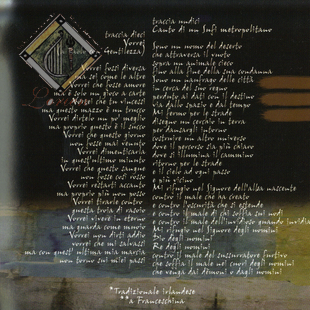 traccia dieci
Vorrei
(di Paolo e Gentilezza)
Vorrei fossi diversa
ma sei come le altre
Vorrei che fosse amore
ma è solo un gioco a carte
Vorrei che tu vincessi
ma questo mazzo è un trucco
Vorrei dirtelo un po' meglio
ma proprio questo è il succo
Vorrei che questo giorno
non fosse mai venuto
Vorrei dimenticarla
in quest'ultimo minuto
Vorrei che questo sangue
non fosse così rosso
Vorrei restarti accanto
ma proprio non posso
Vorrei tirarle contro
questa troia di rasoio
Vorrei vivere in eterno
ma guarda come muoio
Vorrei non dirti addio
vorrei che mi salvassi
ma con quest'ultima mia marcia
non torno sui miei passi
traccia undici
Canto di un Sufi metropolitano
Sono un uomo del deserto
che attraversa il vuoto
sopra un animale cieco
Fino alla fine della sua condanna
Sono un naufrago delle città
in cerca del suo regno
perduto ai dati con il destino
via dallo spazio e dal tempo
Mi fermo per le strade
disegno un cerchio in terra
per danzargli intorno
costruire un altro cielo
dove il percorso sia più chiaro
dove si illumina il cammino
ritorno per le strade
e il cielo ad ogni passo
è più vicino
Mi rifugio nel Signore dell'alba nascente
contro il male che ha creato
e contro l'oscurità che si estende
contro il male di chi soffia sui nodi
contro il male dell'invidioso quando invidia
Mi rifugio nel Signore degli uomini
Dio degli uomini
Re degli uomini
contro il male del sussurratore furtivo
che soffia il male nei cuori degli uomini
che venga dai dèmoni o dagli uomini
*Tradizionale irlandese
**a Franceschina